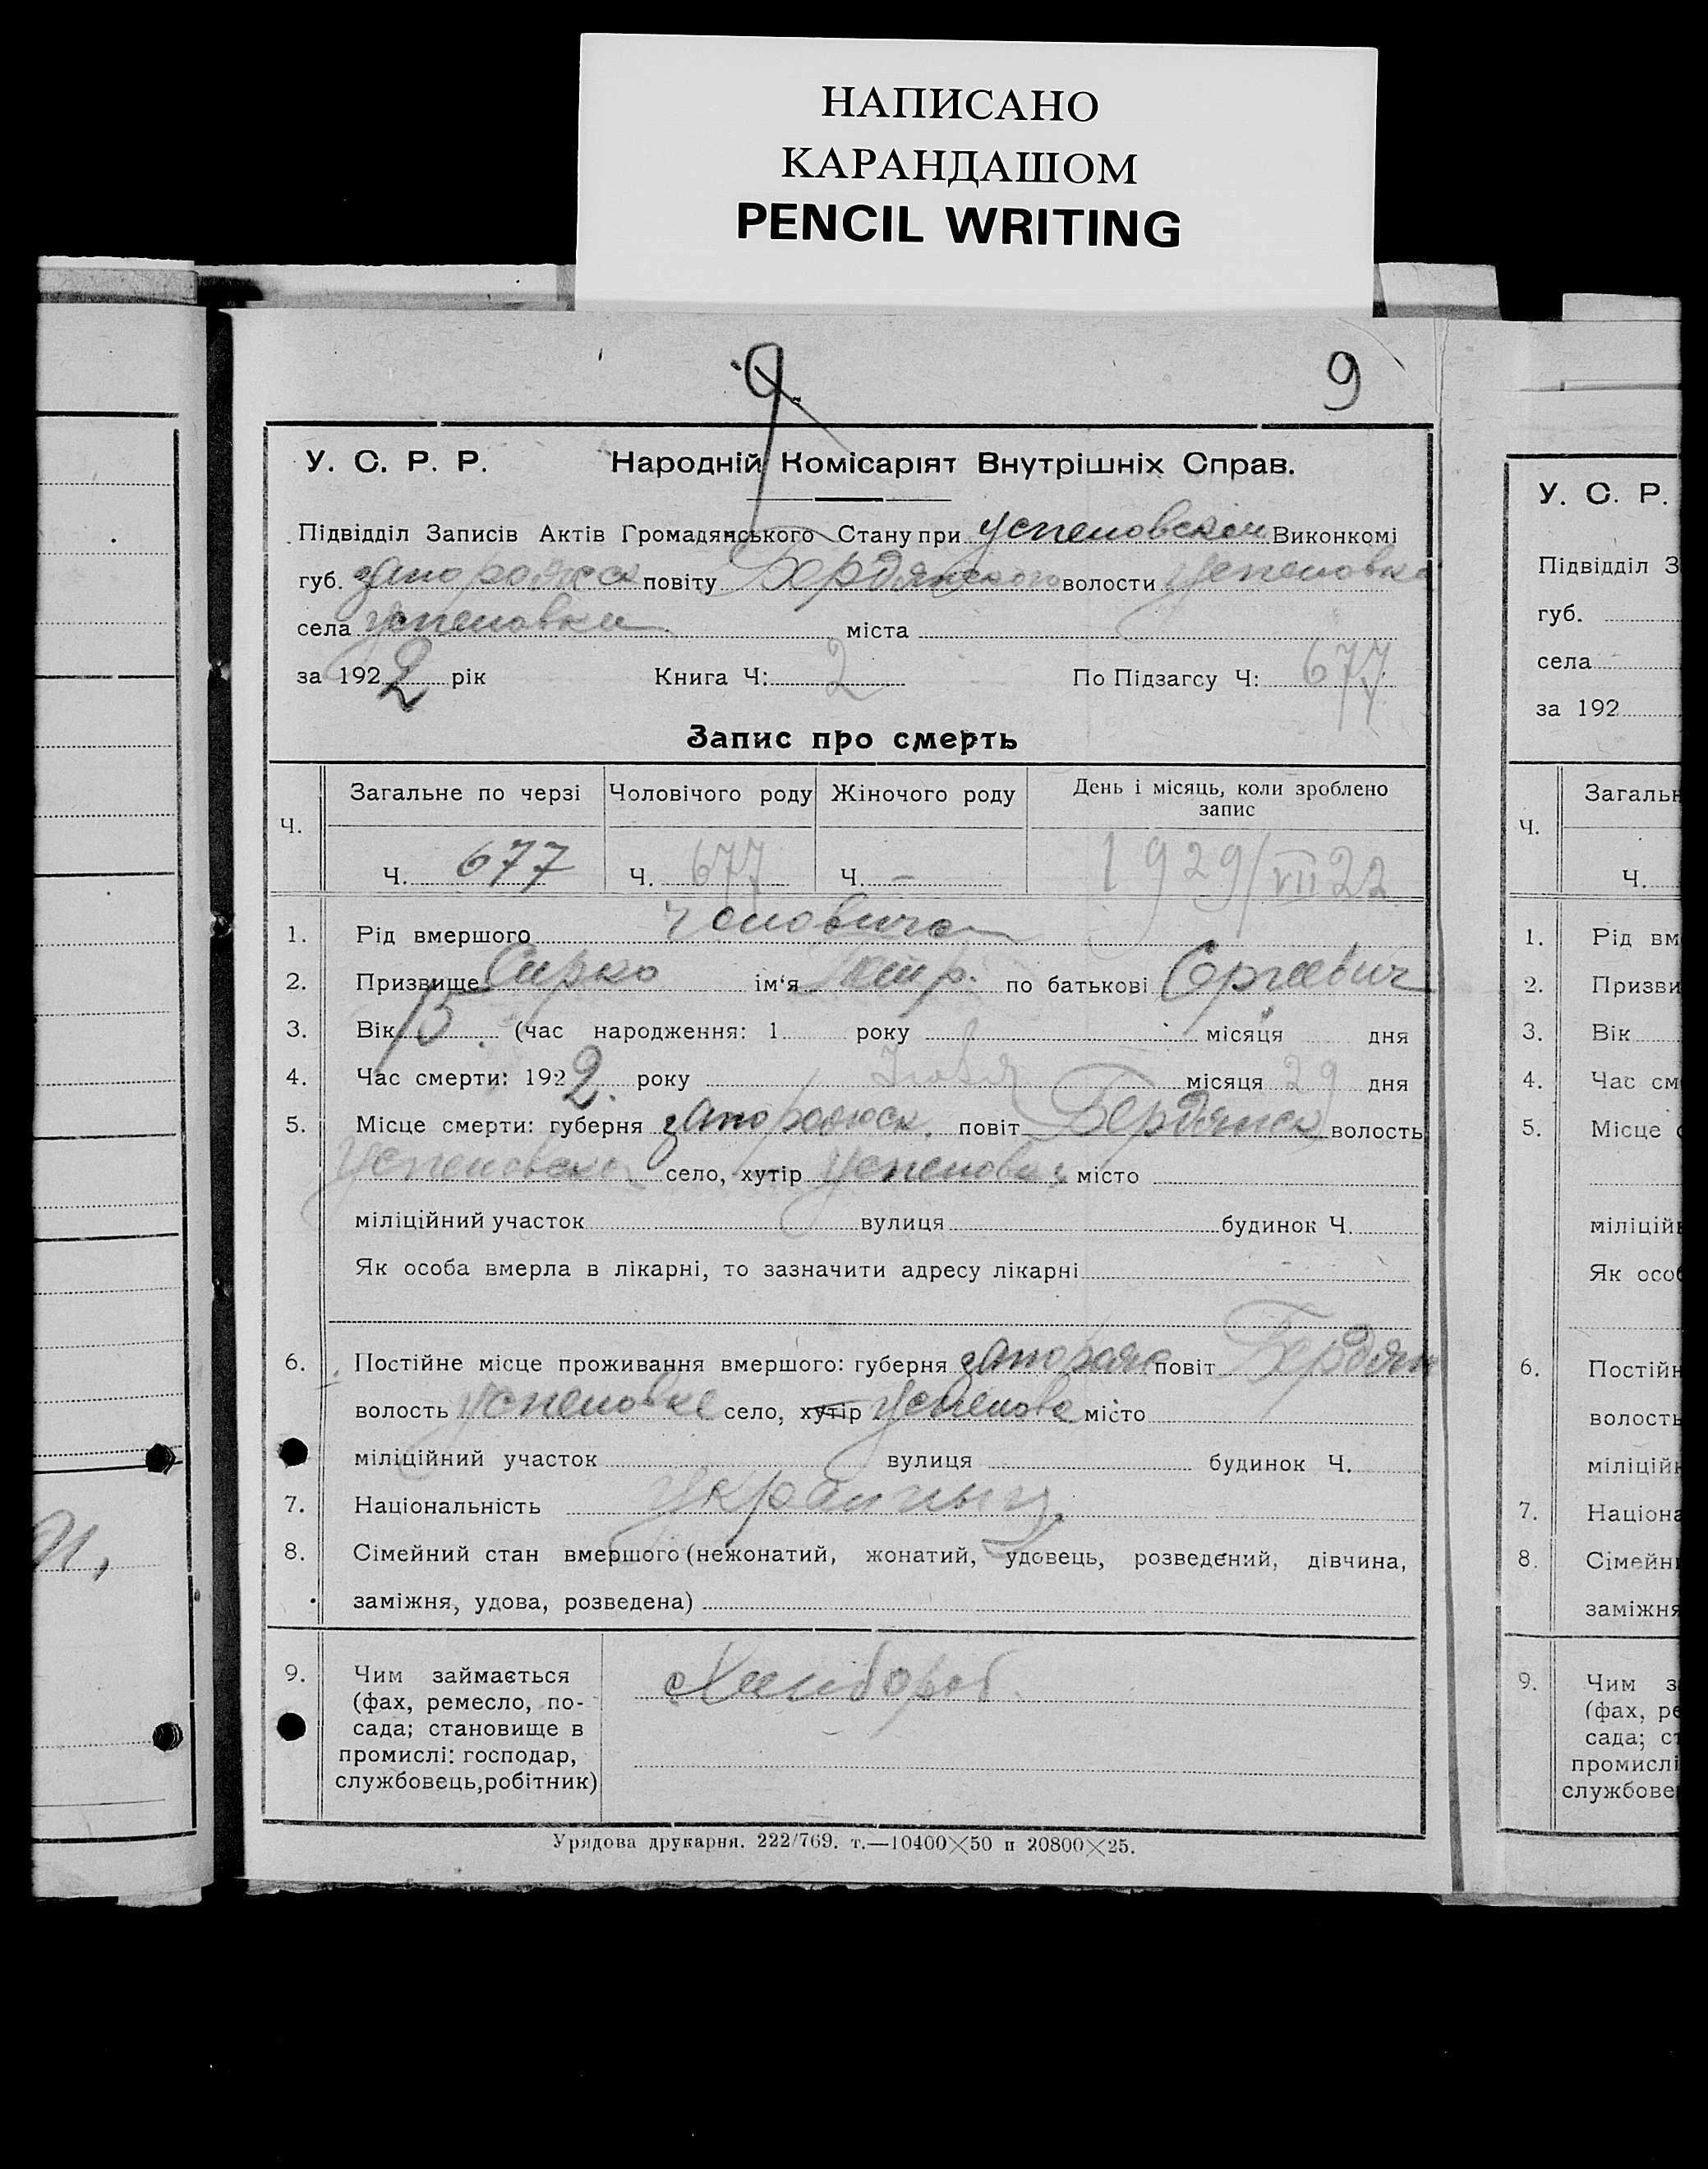 НАПИСАНО
КАРАНДАШОМ
PENCIL WRITING
9. 9
У. С. Р. Р. Народній Комісаріят Внутрішніх Справ.
Підвідділ Записів Актів Громадянського Стану при Успеновском Виконкомі
губ. Запорожск повіту Бердянского волости Успеновка
села Успеновка міста
за 1922 рік Книга Ч: 2 По Підзагсу Ч: 677
Запис про смерть
Ч. Загальне по черзі Чоловічого роду Жіночого роду День і місяць, коли зроблено запис
Ч. 677 Ч. 677 Ч. – 1929/VII 22
1. Рід вмершого
2. Призвище Сирко ім'я Петр. по батькові Сергеевич
3. Вік 15 (час народження: 1 року місяця дня
4. Час смерти: 1922. року місяця 29 дня
5. Місце смерти: губерня Запорожск. повіт Бердянск волость
Успеновска село, хутір Успеновка місто
міліційний участок вулиця будинок Ч.
Як особа вмерла в лікарні, то зазначити адресу лікарні
6. Постійне місце проживання вмершого: губерня Запорож повіт Бердян
волость село, хутір місто
міліційний участок вулиця будинок Ч.
7. Національність
8. Сімейний стан вмершого (нежонатий, жонатий, удовець, розведений, дівчина,
заміжня, удова, розведена)
9. Чим займається
(фах, ремесло, по-
сада; становище в
промислі: господар,
службовець, робітник)
Хлибороб
Урядова друкарня. 222/769. т.—10400×50 и 20800×25.
У. С. Р.
Підвідділ З
губ.
села
за 192
Ч. Загальн
Ч.
1. Рід вм
2. Призви
3. Вік
4. Час см
5. Місце с
міліційн
Як особ
6. Постійн
волость
міліційн
7. Націона
8. Сімейни
заміжня
9. Чим з
(фах, ре
сада; ст
промислі
службове